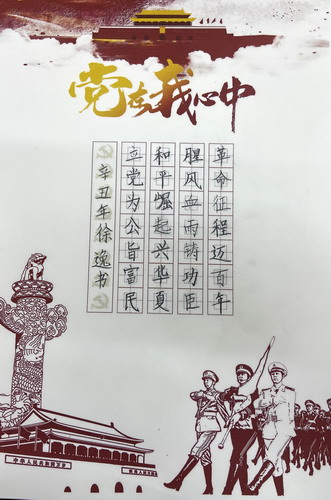 党在我心中
革命征程迈百年
腥风血雨铸功臣
和平崛起兴华夏
立党为公旨富民
辛丑年徐逸书
中华人民共和国万岁